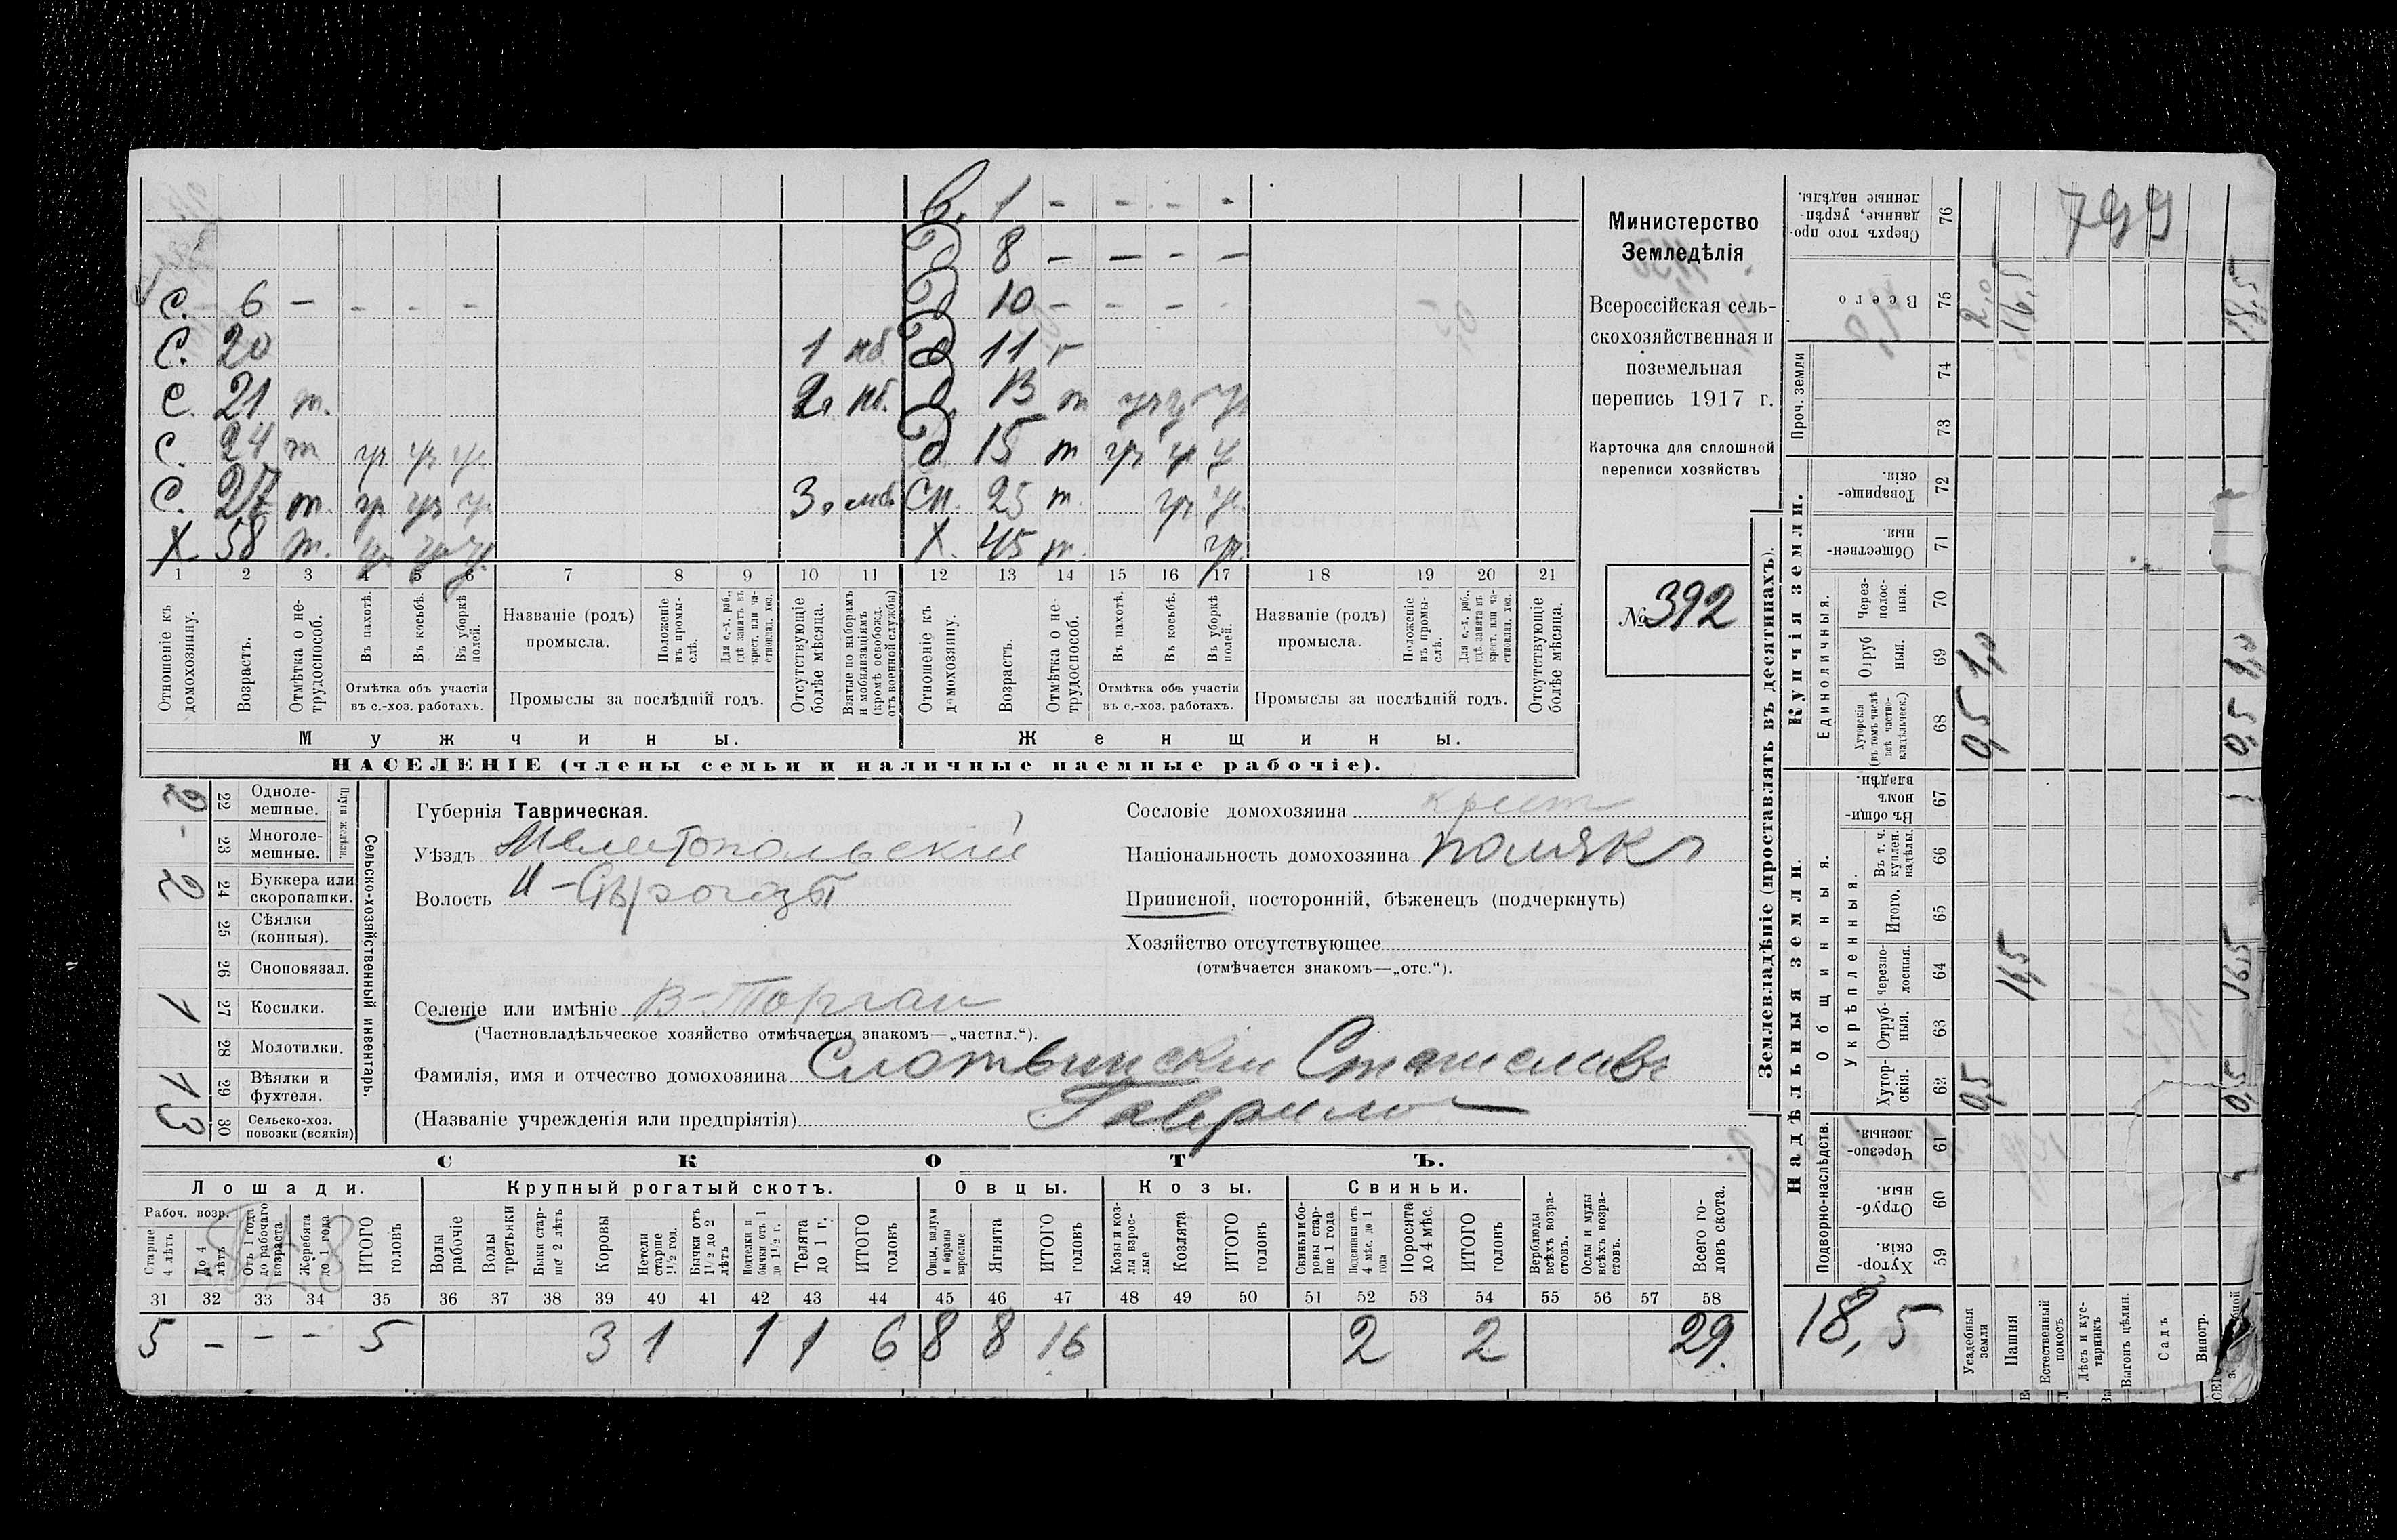 в. 1 - - - -
д 8 - - - -
С. 6 - - - - д 10 - - - -
С. 20 1 мб д 11 -
С. 21 т. 2 мб. д. 13 т
С. 24 т д 15 т
С. 27 т. 3 мб. Сн. 25 т.
Х. 58 т. Х. 45 т.
1 2 3 4 5 6 7 8 9 10 11 12 13 14 15 16 17 18 19 20 21
Отношеніе къ домохозяину.
Возрастъ.
Отмѣтка о не-трудоспособ.
Въ пахотѣ.
Въ косьбѣ.
Въ уборкѣ полей.
Отмѣтка объ участіи
въ с.-хоз. работахъ.
Названіе (родъ)
промысла.
Положеніе въ промы-слѣ.
Для с.-х. раб., гдѣ занятъ въ крест. или ча-стновлад. хоз.
Промыслы за послѣдній годъ.
Отсутствующіе болѣе мѣсяца.
Взятые по наборамъ и мобилизаціямъ (кромѣ освобожд. отъ военной службы)
Отношеніе къ домохозяину.
Возрастъ.
Отмѣтка о не-трудоспособ.
Въ пахотѣ.
Въ косьбѣ.
Въ уборкѣ полей.
Отмѣтка объ участіи
въ с.-хоз. работахъ.
Названіе (родъ)
промысла.
Положеніе въ промы-слѣ.
Для с.-х. раб., гдѣ занята въ крест. или ча-стновлад. хоз.
Промыслы за послѣдній годъ.
Отсутствующіе болѣе мѣсяца.
Мужчины. Женщины.
НАСЕЛЕНІЕ (члены семьи и наличные наемные рабочіе).
Министерство
Земледѣлія
Всероссійская сель-
скохозяйственная и
поземельная
перепись 1917 г.
Карточка для сплошной
переписи хозяйствъ
№ 392
Сельско-хозяйственный инвентарь.
Плуги желѣзн.
2 22 Одноле-мешные.
- 23 Многоле-мешные.
2 24 Буккера или скоропашки.
25 Сѣялки (конныя).
26 Сноповязал.
1 27 Косилки.
28 Молотилки.
1 29 Вѣялки и фухтеля.
3 30 Сельско-хоз. повозки (всякія)
Губернія Таврическая.
Уѣздъ Мелитопольскій
Волость
Селеніе или имѣніе В-Торгаи
(Частновладѣльческое хозяйство отмѣчается знакомъ—„частвл.“).
Фамилія, имя и отчество домохозяина Слотвинскій Станиславъ
(Названіе учрежденія или предпріятія) Гаврилов
Сословіе домохозяина крест
Національность домохозяина полякъ
Приписной, посторонній, бѣженецъ (подчеркнуть)
Хозяйство отсутствующее
(отмѣчается знакомъ—„отс.“).
СКОТЪ.
Лошади. Крупный рогатый скотъ. Овцы. Козы. Свиньи.
Рабоч. возр.
Старше 4 лѣтъ
До 4 лѣтъ
Отъ 1 года до рабочаго возраста
Жеребята до 1 года
ИТОГО головъ
Волы рабочіе
Волы третьяки
Быки стар-ше 2 лѣтъ
Коровы
Нетели старше 1½ год.
Бычки отъ 1½ до 2 лѣтъ
Подтелки и бычки отъ 1 до 1½ г.
Телята до 1 г.
ИТОГО головъ
Овцы, валухи и бараны взрослые
Ягнята
ИТОГО головъ
Козы и коз-лы взрос-лые
Козлята
ИТОГО головъ
Свиньи и бо-ровы стар-ше 1 года
Подсвинки отъ 4 мѣс. до 1 года
Поросята до 4 мѣс.
ИТОГО головъ
Верблюды всѣхъ возра-стовъ.
Ослы и мулы всѣхъ возра-стовъ.
Всего го-ловъ скота.
31 32 33 34 35 36 37 38 39 40 41 42 43 44 45 46 47 48 49 50 51 52 53 54 55 56 57 58
5 - - - 5 3 1 1 1 6 8 8 16 2 2 29.
Землевладѣніе (проставлять въ десятинахъ).
Надѣльныя земли. Купчія земли.
Подворно-наслѣдств.
Общинныя.
Укрѣпленныя.
Единоличныя.
Проч. земли
Сверхъ того про-данные, укрѣп-ленные надѣлы. 76
Всего 75 2,0 16,5 18,5
74
73
Товарище-скія. 72
Обществен-ныя. 71
Через-полос-ныя. 70
Отруб ныя. 69 1,0 1,0
Хуторскія (въ томъ числѣ всѣ частно-владѣльческ.) 68 0,5 0,5
Въ общи-номъ владѣн. 67
Въ т. ч. куплен. надѣлы. 66
Итого. 65
Черезпо-лосныя. 64 16,5 16,5
Отруб-ныя. 63
Хутор-скія. 62 0,5 0,5
Черезпо-лосныя 61
Отруб-ныя. 60
Хутор-скія. 59
799
18,5
Усадебныя земли
Пашня
Естественный покосъ
Лѣсъ и кус-тарникъ
Выгонъ цѣлин.
Садъ
Виногр.